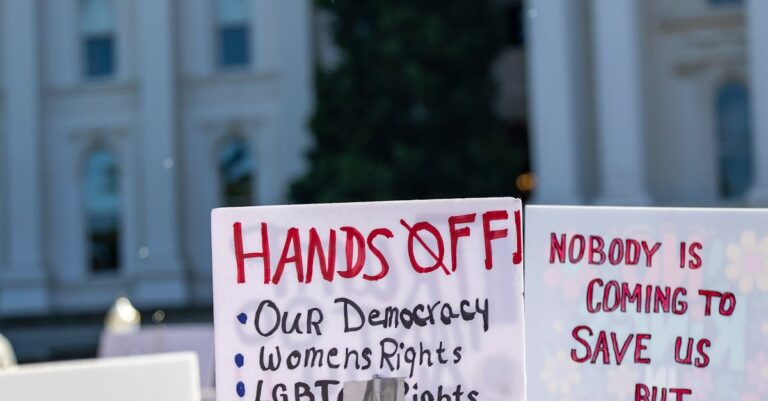 HANDS OFF!
• Our Democracy
• Womens Rights
• LGBT Rights
NOBODY IS
COMING TO
SAVE US
BUT